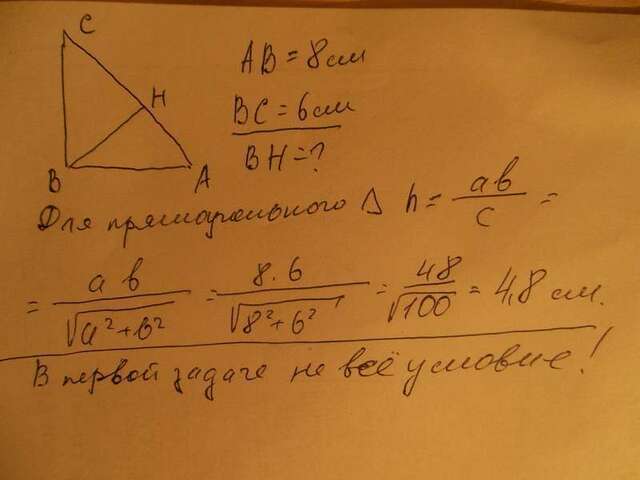 C
H
B
A
AB = 8 см
BC = 6 см
BH = ?
Для прямоугольного Δ h = ab/c =
= ab/√(a²+b²) = 8·6/√(8²+6²) = 48/√100 = 4,8 см.
В первой задаче не всё условие!